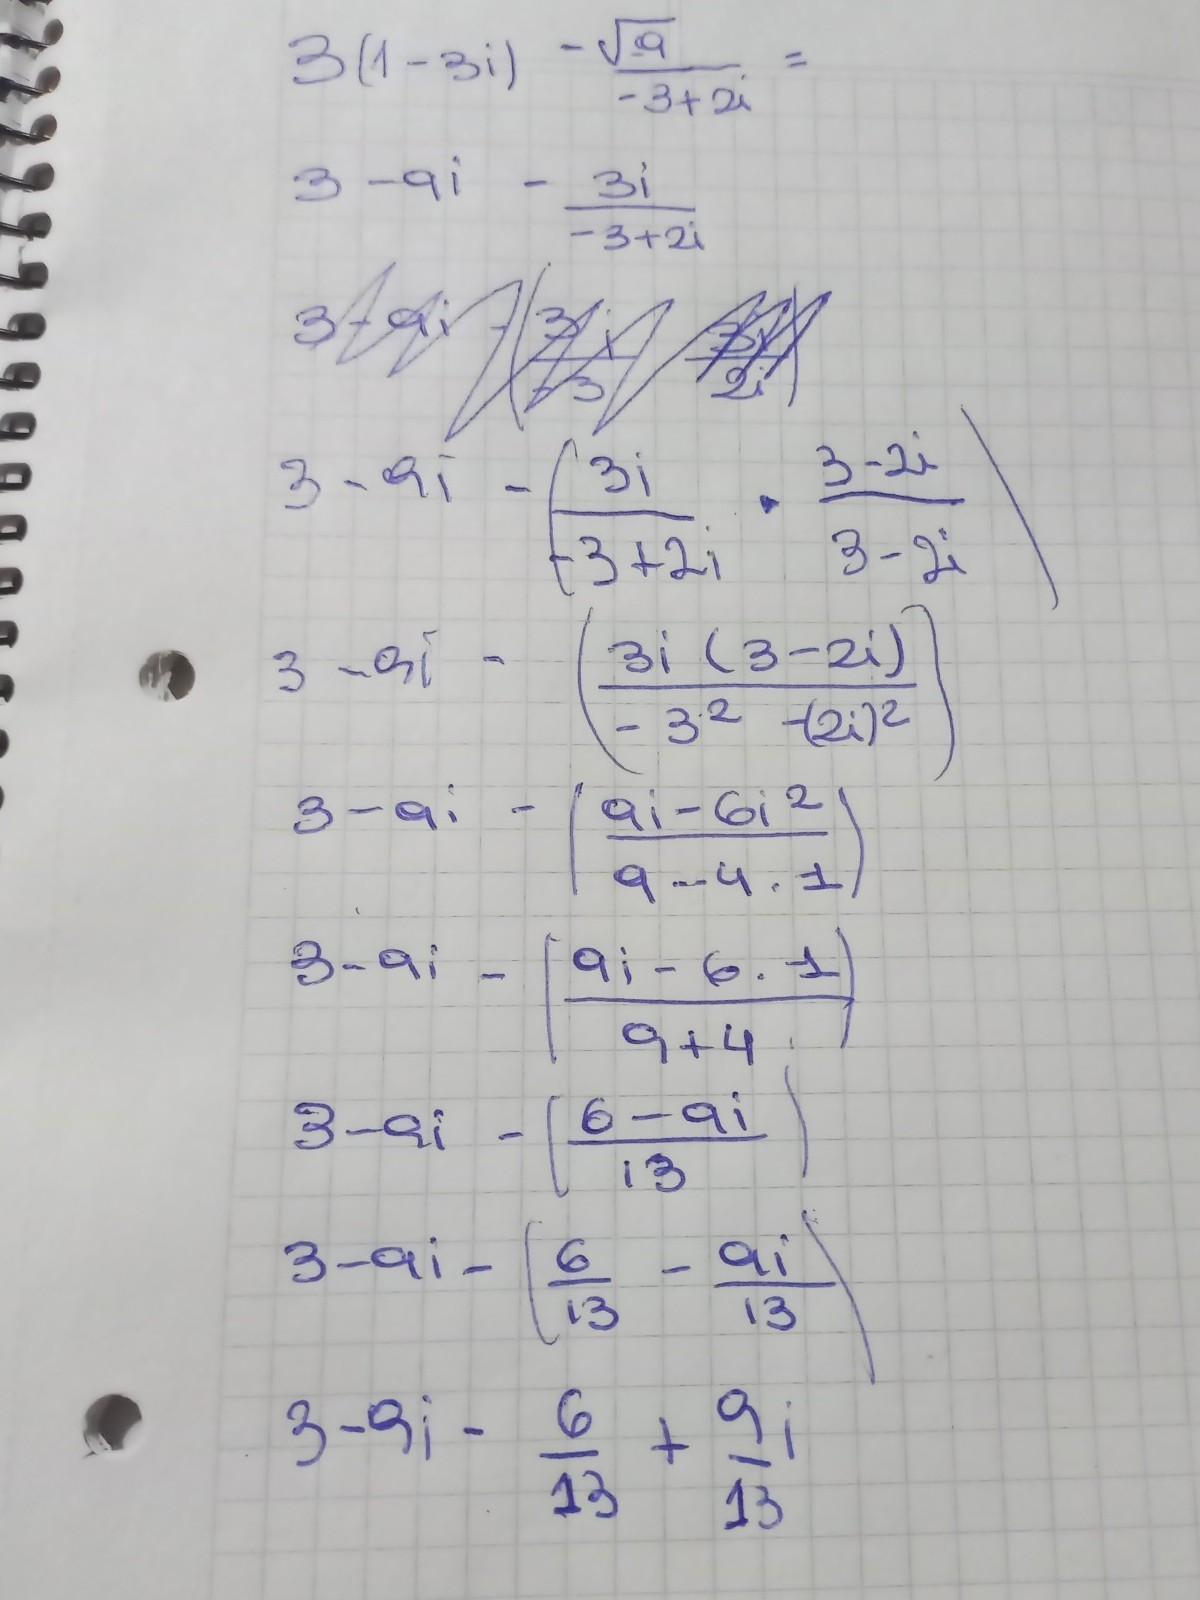 3(1-3i) - √-9/(-3+2i) =
3 - 9i - 3i/(-3+2i)
3 - 9i - (3i/(-3+2i) · (3-2i)/(3-2i))
3 - 9i - (3i(3-2i)/(-3² -(2i)²))
3 - 9i - ((9i-6i²)/(9--4·1))
3 - 9i - ((9i-6·-1)/(9+4))
3 - 9i - ((6-9i)/13)
3 - 9i - (6/13 - 9i/13)
3 - 9i - 6/13 + 9/13 i